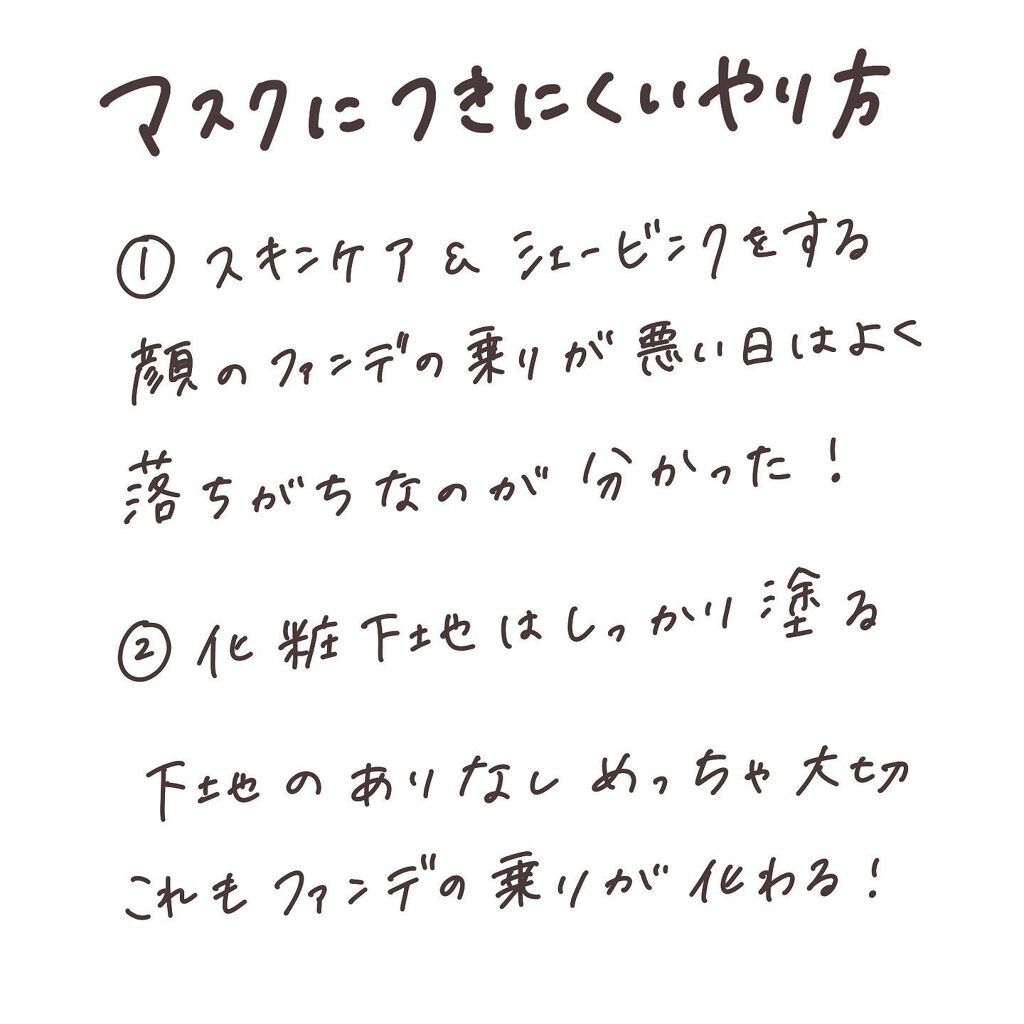 マスクにつきにくいやり方
① スキンケア & シェービングをする
顔のファンデの乗りが悪い日はよく
落ちがちなのが分かった!
② 化粧下地はしっかり塗る
下地のありなしめっちゃ大切
これもファンデの乗りが化わる!